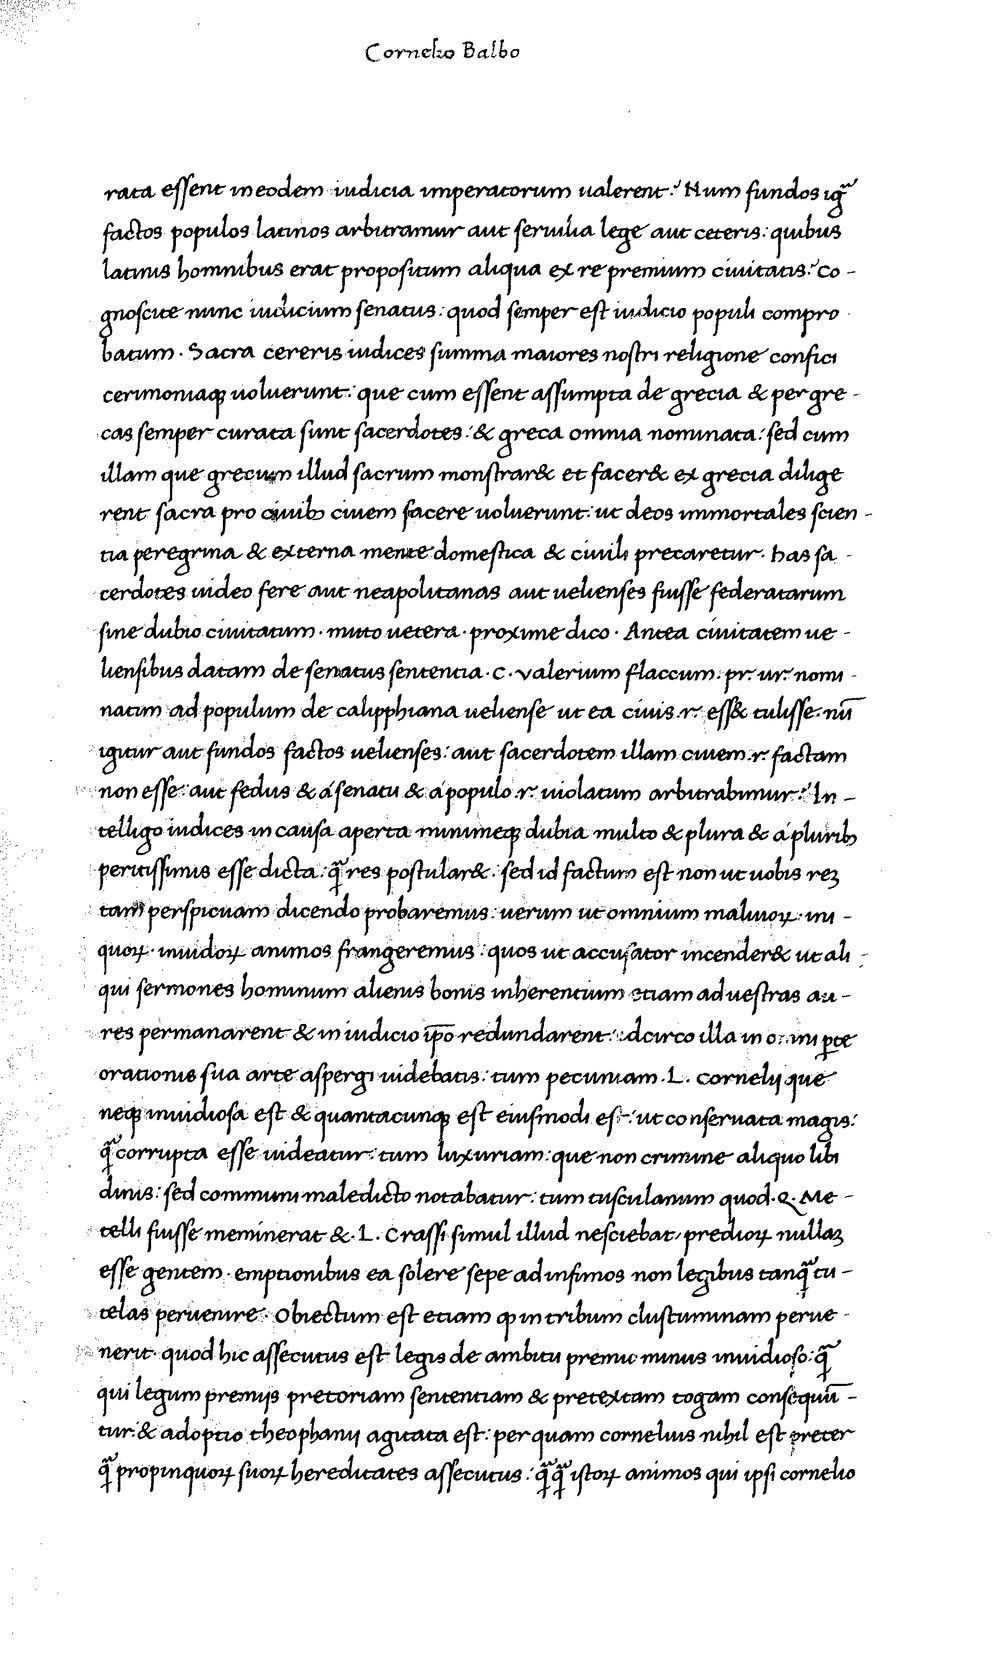 Cornelio Balbo
rata essent in eodem iudicia imperatorum ualerent:' Num fundos ig̃
factos populos latinos arbitramur aut seruilia lege aut ceteris: quibus
latinis hominibus erat propositum aliqua ex re premium ciuitatis:' Co-
gnoscite nunc iudicium senatus: quod semper est iudicio populi compro
batum · Sacra cereris iudices summa maiores nostri religione confici
cerimoniaqꝫ uoluerunt: que cum essent assumpta de grecia & per gre-
cas semper curata sunt sacerdotes: & greca omnia nominata: sed cum
illam que grecum illud sacrum monstrar& et facer& ex grecia dilige
rent sacra pro ciuibꝫ ciuem facere uoluerunt: ut deos immortales scien-
tia peregrina & externa mente domestica & ciuili precaretur · has sa-
cerdotes uideo fere aut neapolitanas aut uelienses fuisse federatarum
sine dubio ciuitatum · mitto uetera · proxime dico · Antea ciuitatem ue-
liensibus datam de senatus sententia · C · valerium flaccum · pr · ur · nomi-
natim ad populum de calipphiana ueliense ut ea ciuis · r · ess& tulisse · nū
igitur aut fundos factos uelienses: aut sacerdotem illam ciuem · r · factam
non esse: aut fedus & á senatu & á populo · r · uiolatum arbitrabimur:' In-
telligo iudices in causa aperta minimeqꝫ dubia multo & plura & á pluribꝫ
peritissimis esse dicta: q̃ res postular& · sed id factum est non ut uobis reꝫ
tam perspicuam dicendo probaremus: uerum ut omnium maliuoꝝ · ini-
quoꝝ · inuidoꝝ animos frangeremus: quos ut accusator incender& ut ali-
qui sermones hominum alienis bonis inherentium etiam ad uestras au-
res permanarent & in iudicio ip̄o redundarent: idcirco illa in omni ꝑte
orationis sua arte aspergi uidebatis: tum pecuniam · L · cornelij que
neqꝫ inuidiosa est & quantacunqꝫ est eiusmodi est: ut conseruata magis:
q̃ corrupta esse uideatur: tum luxuriam: que non crimine aliquo libi
dinis: sed communi maledicto notabatur: tum tusculanum quod · Q · Me-
telli fuisse meminerat & · L · Crassi simul illud nesciebat, predioꝝ nullaꝫ
esse gentem · emptionibus ea solere sepe ad infimos non legibus tanq̃ tu-
telas peruenire · Obiectum est etiam ꝙ in tribum clustuminam perue-
nerit · quod hic assecutus est legis de ambitu premio minus inuidioso: q̃
qui legum premijs pretoriam sententiam & pretextam togam consequū-
tur: & adoptio theophanij agitata est: per quam cornelius nihil est preter
q̃ propinquoꝝ suoꝝ hereditates assecutus: q̃q̃ istoꝝ animos qui ipsi cornelio